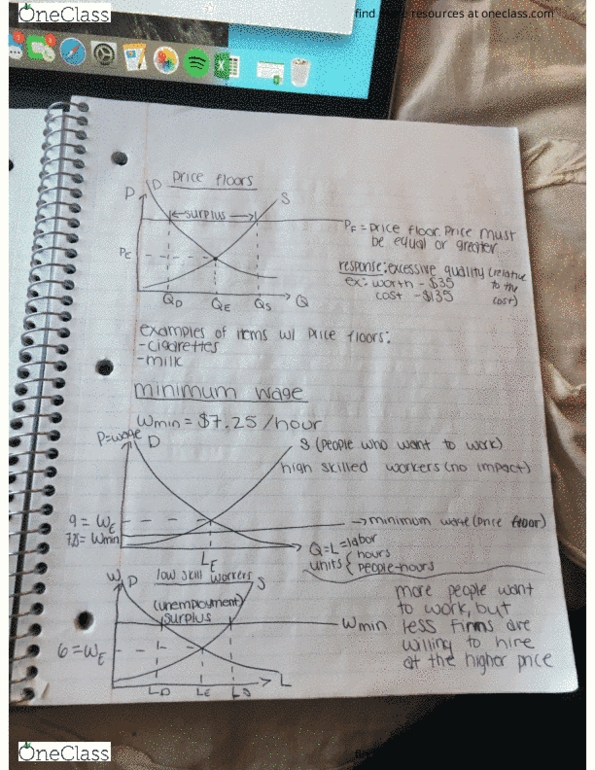 OneClass
find more resources at oneclass.com
Price floors
P
D
S
←surplus→
PF = price floor. Price must
be equal or greater
PE
response: excessive quality (relative
to the
cost)
ex: worth - $35
cost - $135
QD
QE
QS
Q
examples of items w/ price floors:
-cigarettes
-milk
minimum wage
Wmin = $7.25/hour
P=wage
D
S (people who want to work)
high skilled workers (no impact)
9 = WE
7.25 = Wmin
→minimum wage (price floor)
LE
Q=L=labor
units { hours
people-hours
W
D
low skill workers
S
(unemployment)
surplus
Wmin
6 = WE
LD
LE
LS
L
more people want
to work, but
less firms are
willing to hire
at the higher price
OneClass